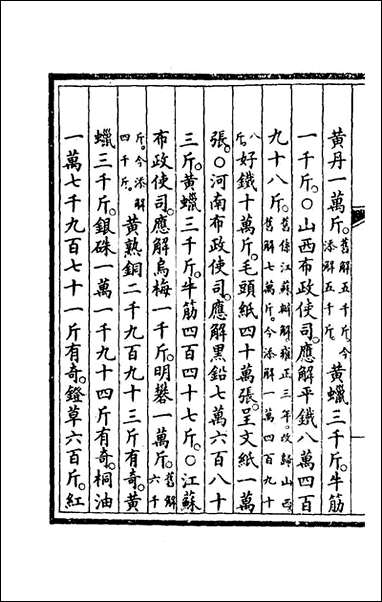 黃丹一萬斤。舊解五千斤。今添解五千斤。黃蠟三千斤。牛筋
一千斤。○山西布政使司。應解平鐵八萬四百
九十八斤。舊係江蘇辦解。雍正三年。改歸山西。舊解七萬斤。今添解一萬四百九十
八斤。好鐵十萬斤。毛頭紙四十萬張。呈文紙一萬
張。○河南布政使司。應解黑鉛七萬六百八十
三斤。黃蠟三千斤。牛筋四百四十七斤。○江蘇
布政使司。應解烏梅一千斤。明礬一萬斤。舊解六千
斤。今添解四千斤。黃熟銅二千九百九十三斤有奇。黃
蠟三千斤。銀硃一萬一千九十四斤有奇。桐油
一萬七千九百七十一斤有奇。鐙草六百斤。紅